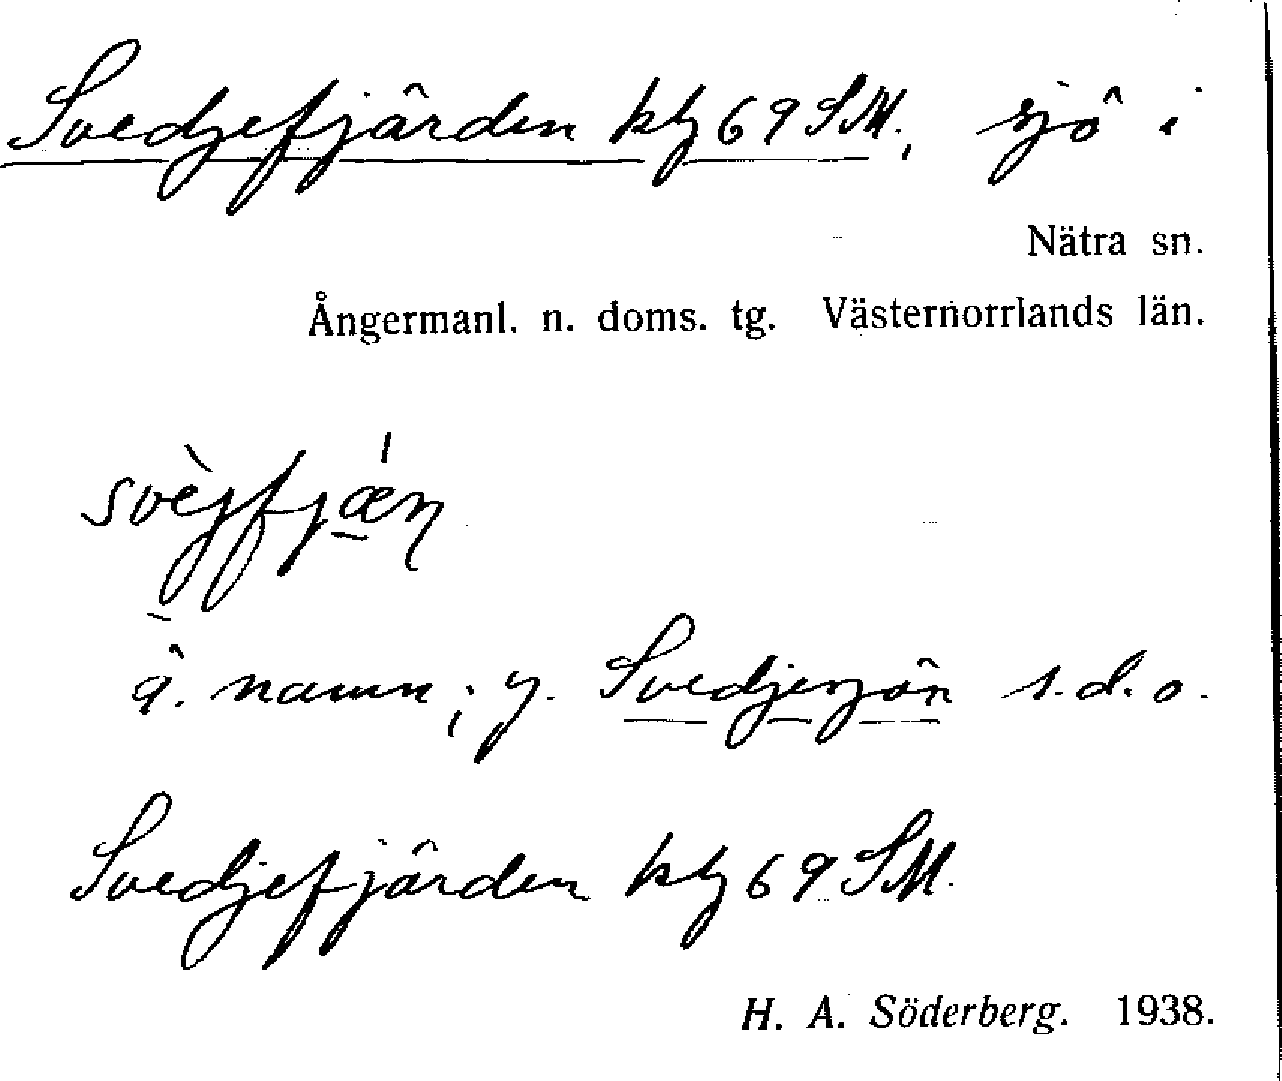 Svedjefjärden kbl 69 SM., sjö i
Nätra sn.
Ångermanl. n. doms. tg. Västernorrlands län.
ä. namn; y. Svedjesjön s.d.o.
Svedjefjärden kbl 69 SM.
H. A. Söderberg. 1938.